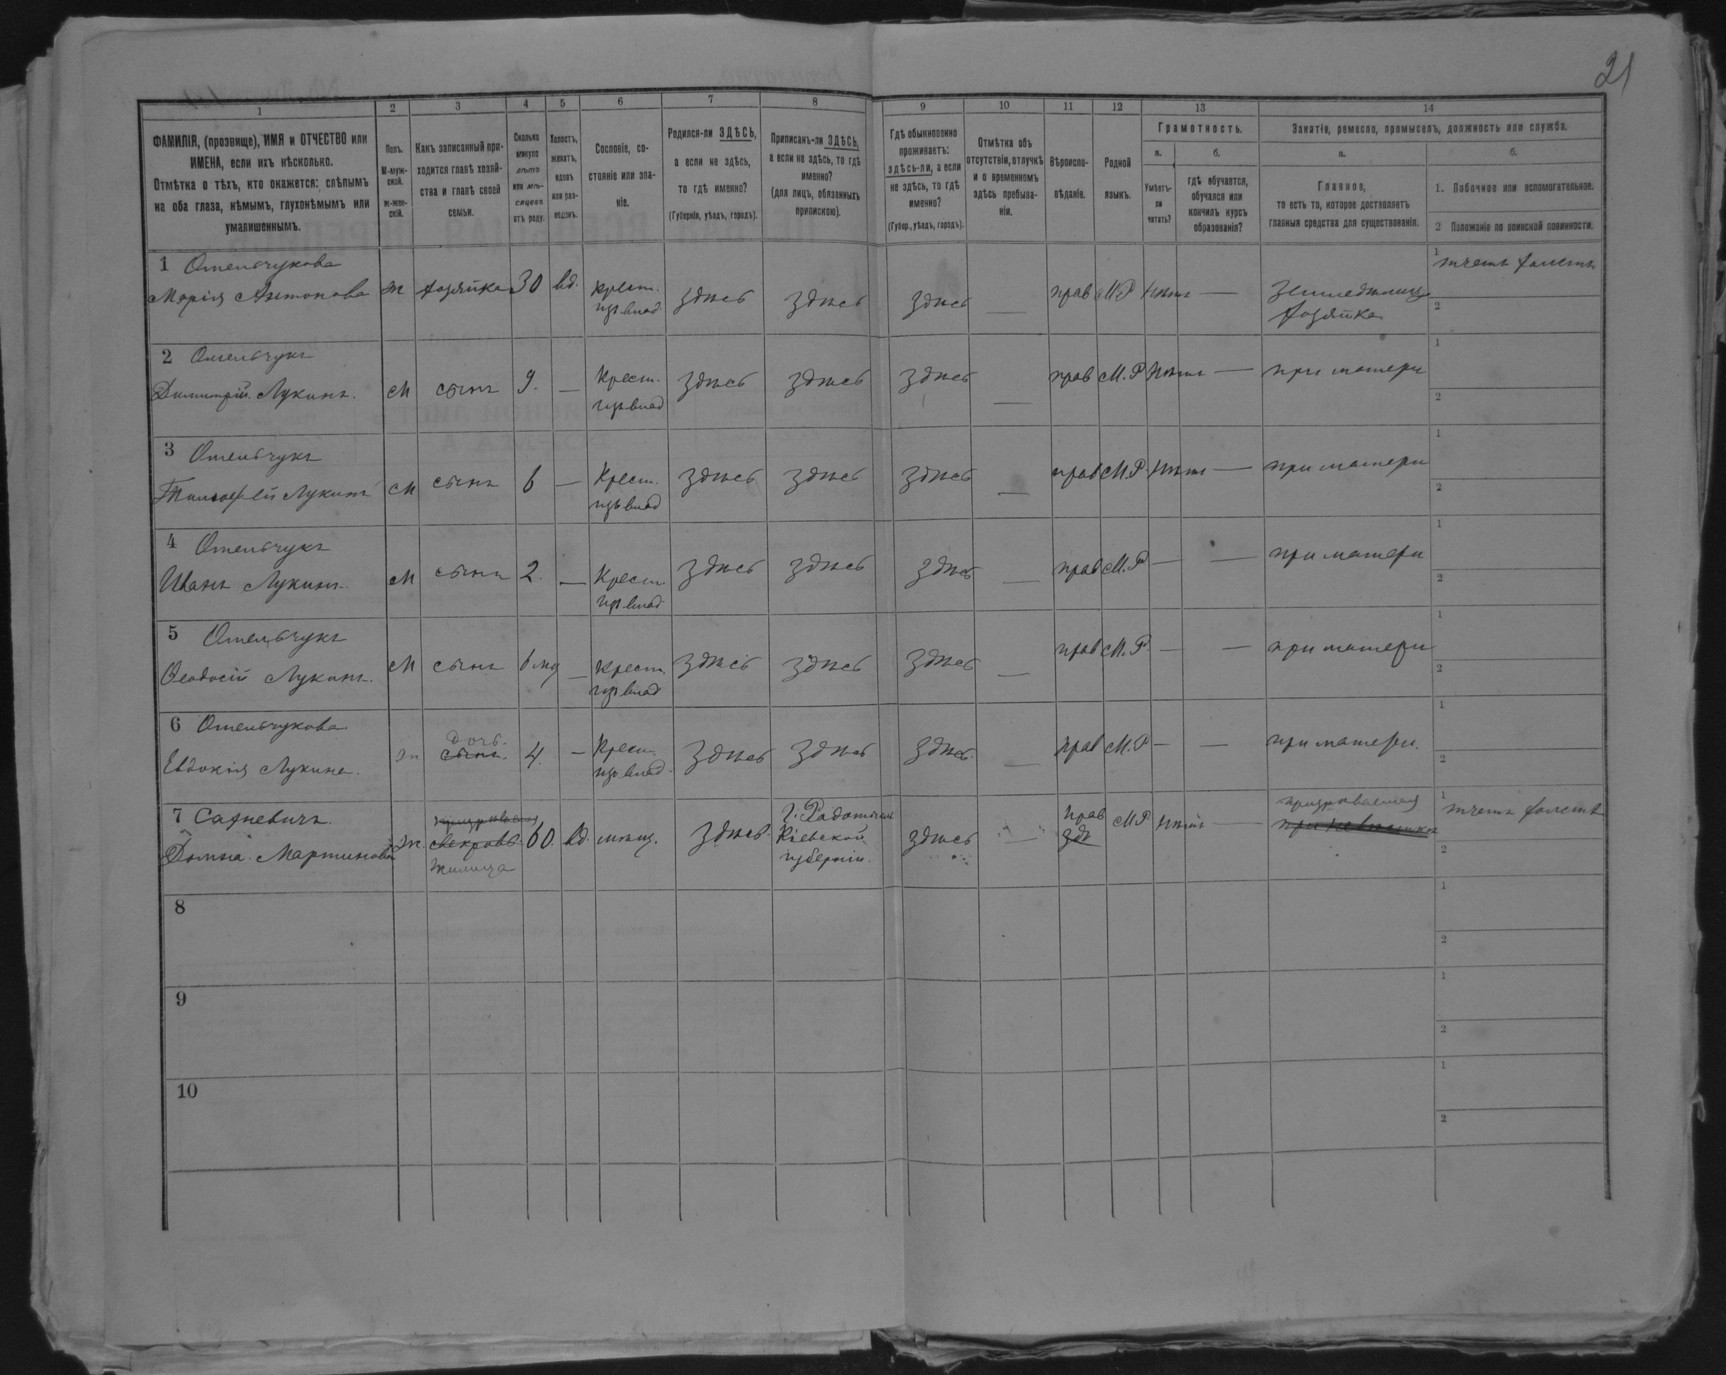 21
1 2 3 4 5 6 7 8 9 10 11 12 13 14
ФАМИЛІЯ, (прозвище), ИМЯ и ОТЧЕСТВО или
ИМЕНА, если ихъ нѣсколько.
Отмѣтка о тѣхъ, кто окажется: слѣпымъ
на оба глаза, нѣмымъ, глухонѣмымъ или
умалишеннымъ.
Полъ.
М-муж-
ской.
ж-жен-
скій.
Какъ записанный при-
ходится главѣ хозяй-
ства и главѣ своей
семьи.
Сколько
минуло
лѣтъ
или мѣ-
сяцевъ
отъ роду.
Холостъ,
женатъ,
вдовъ
или раз-
веденъ.
Сословіе, со-
стояніе или зва-
ніе.
Родился-ли ЗДѢСЬ,
а если не здѣсь,
то гдѣ именно?
(Губернія, уѣздъ, городъ).
Приписанъ-ли ЗДѢСЬ,
а если не здѣсь, то гдѣ
именно?
(для лицъ, обязанныхъ
припискою).
Гдѣ обыкновенно
проживаетъ:
здѣсь-ли, а если
не здѣсь, то гдѣ
именно?
(Губер., уѣздъ, городъ).
Отмѣтка объ
отсутствіи, отлучкѣ
и о временномъ
здѣсь пребыва-
ніи.
Вѣроиспо-
вѣданіе.
Родной
языкъ.
Грамотность.
а.
Умѣетъ-
ли
читать?
б.
гдѣ обучается,
обучался или
кончилъ курсъ
образованія?
Занятіе, ремесло, промыселъ, должность или служба.
а.
Главное,
то есть то, которое доставляетъ
главныя средства для существованія.
б.
1. Побочное или вспомогательное.
2 Положеніе по воинской повинности.
1 Омельчукова
Марія Антонова ж хозяйка 30 вд. крест. здѣсь здѣсь здѣсь — прав М.Р нѣтъ —
изъ влад.
хозяйка
1
2
2 Омельчукъ
Димитрій Лукинъ. м сынъ 9. — Крест. здѣсь здѣсь здѣсь — прав М.Р нѣтъ — при матери
изъ влад
1
2
3 Омельчукъ
Тимофей Лукинъ м сынъ 6 — Крест. здѣсь здѣсь здѣсь — прав М.Р нѣтъ — при матери
изъ влад
1
2
4 Омельчукъ
Иванъ Лукинъ. м сынъ 2. — Крест. здѣсь здѣсь здѣсь — прав М.Р — — при матери
изъ влад
1
2
5 Омельчукъ
Ѳеодосій Лукинъ. м сынъ — Крест. здѣсь здѣсь здѣсь — прав М.Р. — — при матери
изъ влад
1
2
6 Омельчукова
дочь
Евдокія Лукина. ж сынъ. 4. — Крест. здѣсь здѣсь здѣсь — прав М.Р — — при матери.
изъ влад
1
2
7
Домна Мартинова ж. свекровь 60. вд. мѣщ. здѣсь Кіевской губерніи здѣсь — прав М.Р нѣтъ —
жилица
1
2
8
1
2
9
1
2
10
1
2